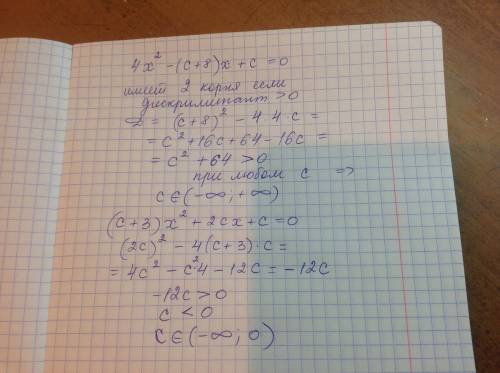 4x² - (c+8)x + c = 0
имеет 2 корня если
дискриминант > 0
D = (c+8)² - 4·4·c =
= c² + 16c + 64 - 16c =
= c² + 64 > 0
при любом c =>
c ∈ (-∞; +∞)
(c+3)x² + 2cx + c = 0
(2c)² - 4(c+3)·c =
= 4c² - c²4 - 12c = -12c
-12c > 0
c < 0
c ∈ (-∞; 0)